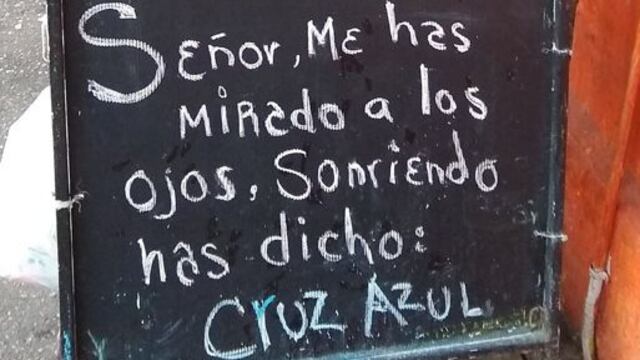 Señor, Me has
mirado a los
ojos, Sonriendo
has dicho:
Cruz Azul